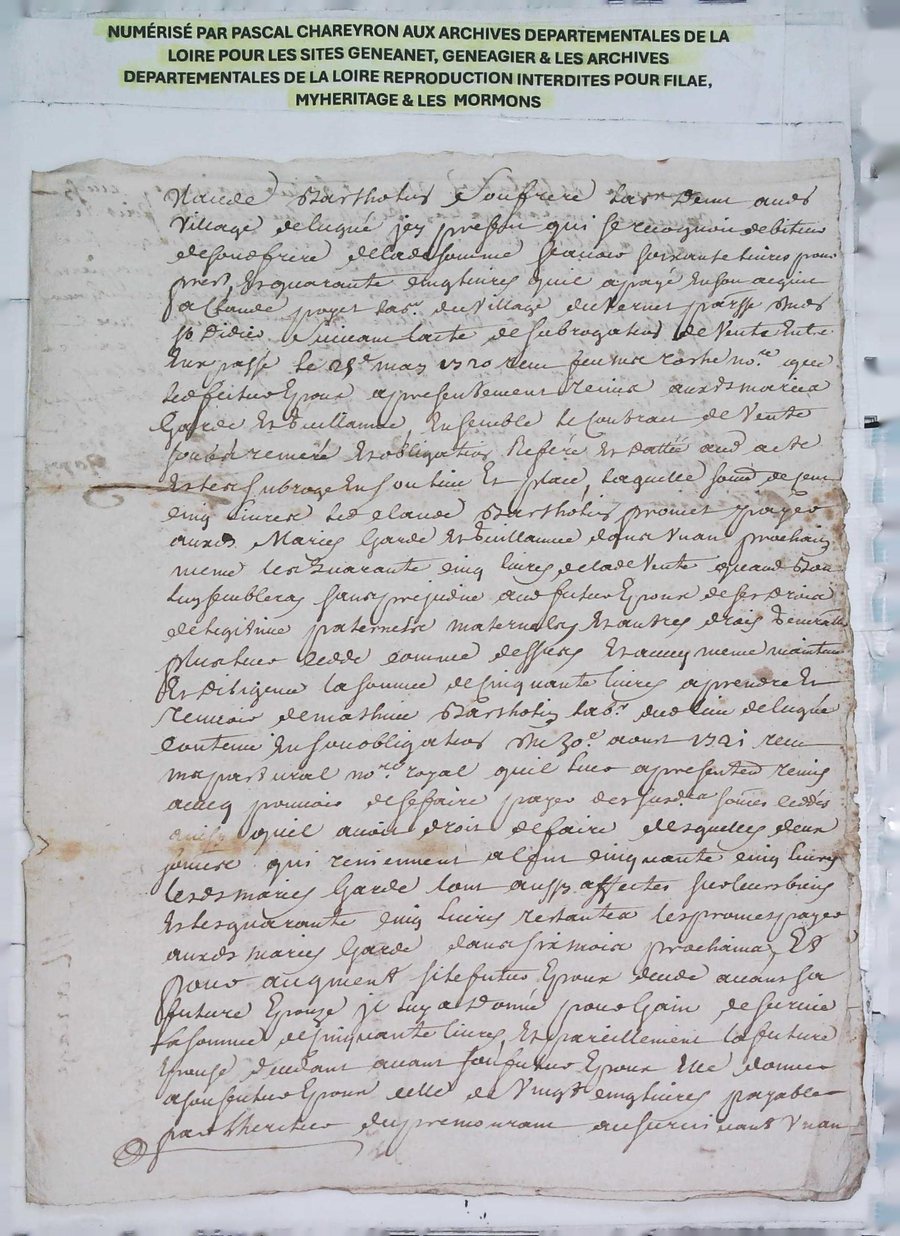 NUMÉRISÉ PAR PASCAL CHAREYRON AUX ARCHIVES DEPARTEMENTALES DE LA
LOIRE POUR LES SITES GENEANET, GENEAGIER & LES ARCHIVES
DEPARTEMENTALES DE LA LOIRE REPRODUCTION INTERDITES POUR FILAE,
MYHERITAGE & LES MORMONS
Claude Bartholin Son frere lab^r Demt aud
Village de lugné icy presen qui se recognoi debiteur
de son frere de lad somme scavoir soixante livres pour
prest, Et quarante cinq livres quil a payé En son acquit
a Claude payet lab^r du Village du Vernet parsse
st Didier Suivant lacte de subrogation de Vente Entre
Eux passé le 25^e may 1720 receu feu coste no^re que
led futur Epoux apresentement remis auxd mariez
Garde Et Vuillame, Ensemble le Contrat de Vente
soubs remeré Et obligation Referé Et dattée aud acte
Et les subroge En son lieu Et place, laquelle somme de cent
cinq livres led Claude Bartholin promet payer
auxd Mariez Garde Et Vuillame dans Un an prochain
meme les Quarante cinq livres de lad Vente quand Bon
luy semblera sans prejudice aud futur Epoux de ses droits
de legitime paternelle maternelle Et autres droits
plus leur cedde comme dessus Et avecq meme maintenue
Et diligence la somme de cinquante livres a prendre Et
recevoir de mathieu Bartholin lab^r dud lieu de lugné
Contenue En son obligation du 30^e aoust 1721 receu
no^re royal quil leur a presentement remis
avecq pouvoir de se faire payer des susd sommes ceddés
quil avoit droit de faire desquelles deux
sommes qui reviennent a cent cinquante cinq livres
lesd mariez Garde sont affectes sur leurs biens
Et les quarante cinq livres restantes les promes payer
auxd mariez Garde dans six mois prochains, Et
pour augment si le futur Epoux decede avant sa
future Epouze il luy a Donné pour Gain de survie
la somme de cinquante livres, Et pareillement la future
Epouse decedant avant son futur Epoux Elle donne
a son futur Epoux celle de Vingt cinq livres payable
par lheritier du premourant au survivant Un an